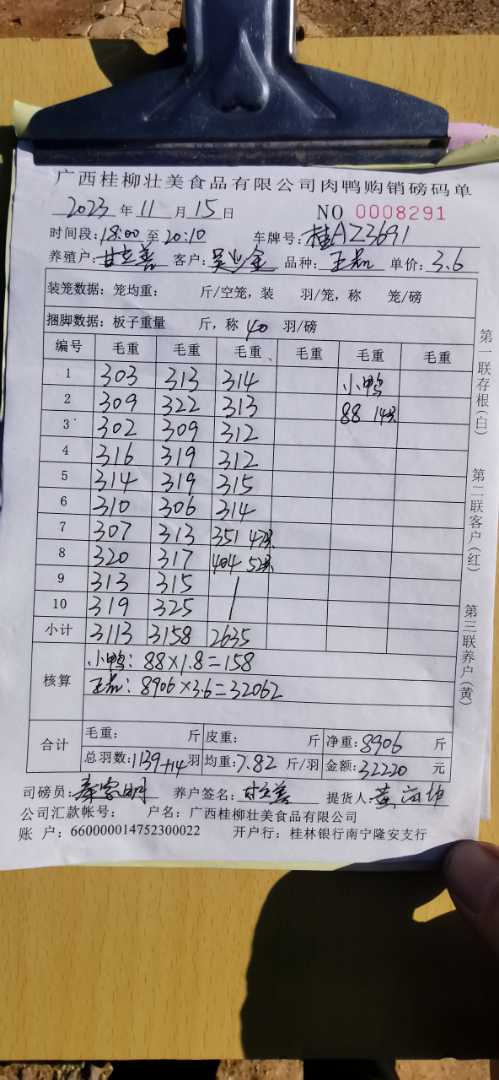 广西桂柳壮美食品有限公司肉鸭购销磅码单
2023 年 11 月 15 日 NO 0008291
时间段: 18:00 至 20:10 车牌号: 桂AZ3691
养殖户: 甘立善 客户: 品种: 单价: 3.6
装笼数据: 笼均重: 斤/空笼, 装 羽/笼, 称 笼/磅
捆脚数据: 板子重量 斤, 称 40 羽/磅
编号 毛重 毛重 毛重 毛重 毛重 毛重
1 303 313 314 小鸭
2 309 322 313 88 14只
3 302 309 312
4 316 319 312
5 314 319 315
6 310 306 314
7 307 313 351 47只
8 320 317 404 52只
9 313 315 /
10 319 325
小计 3113 3158 2635
核算 小鸭: 88×1.8=158
8906×3.6=32062
合计 毛重: 斤 皮重: 斤 净重: 8906 斤
总羽数: 1139+14 羽 均重: 7.82 斤/羽 金额: 32220 元
司磅员: 养户签名: 甘立善 提货人: 黄
公司汇款帐号: 户名: 广西桂柳壮美食品有限公司
账 户: 660000014752300022 开户行: 桂林银行南宁隆安支行
第一联存根(白)
第二联客户(红)
第三联养户(黄)